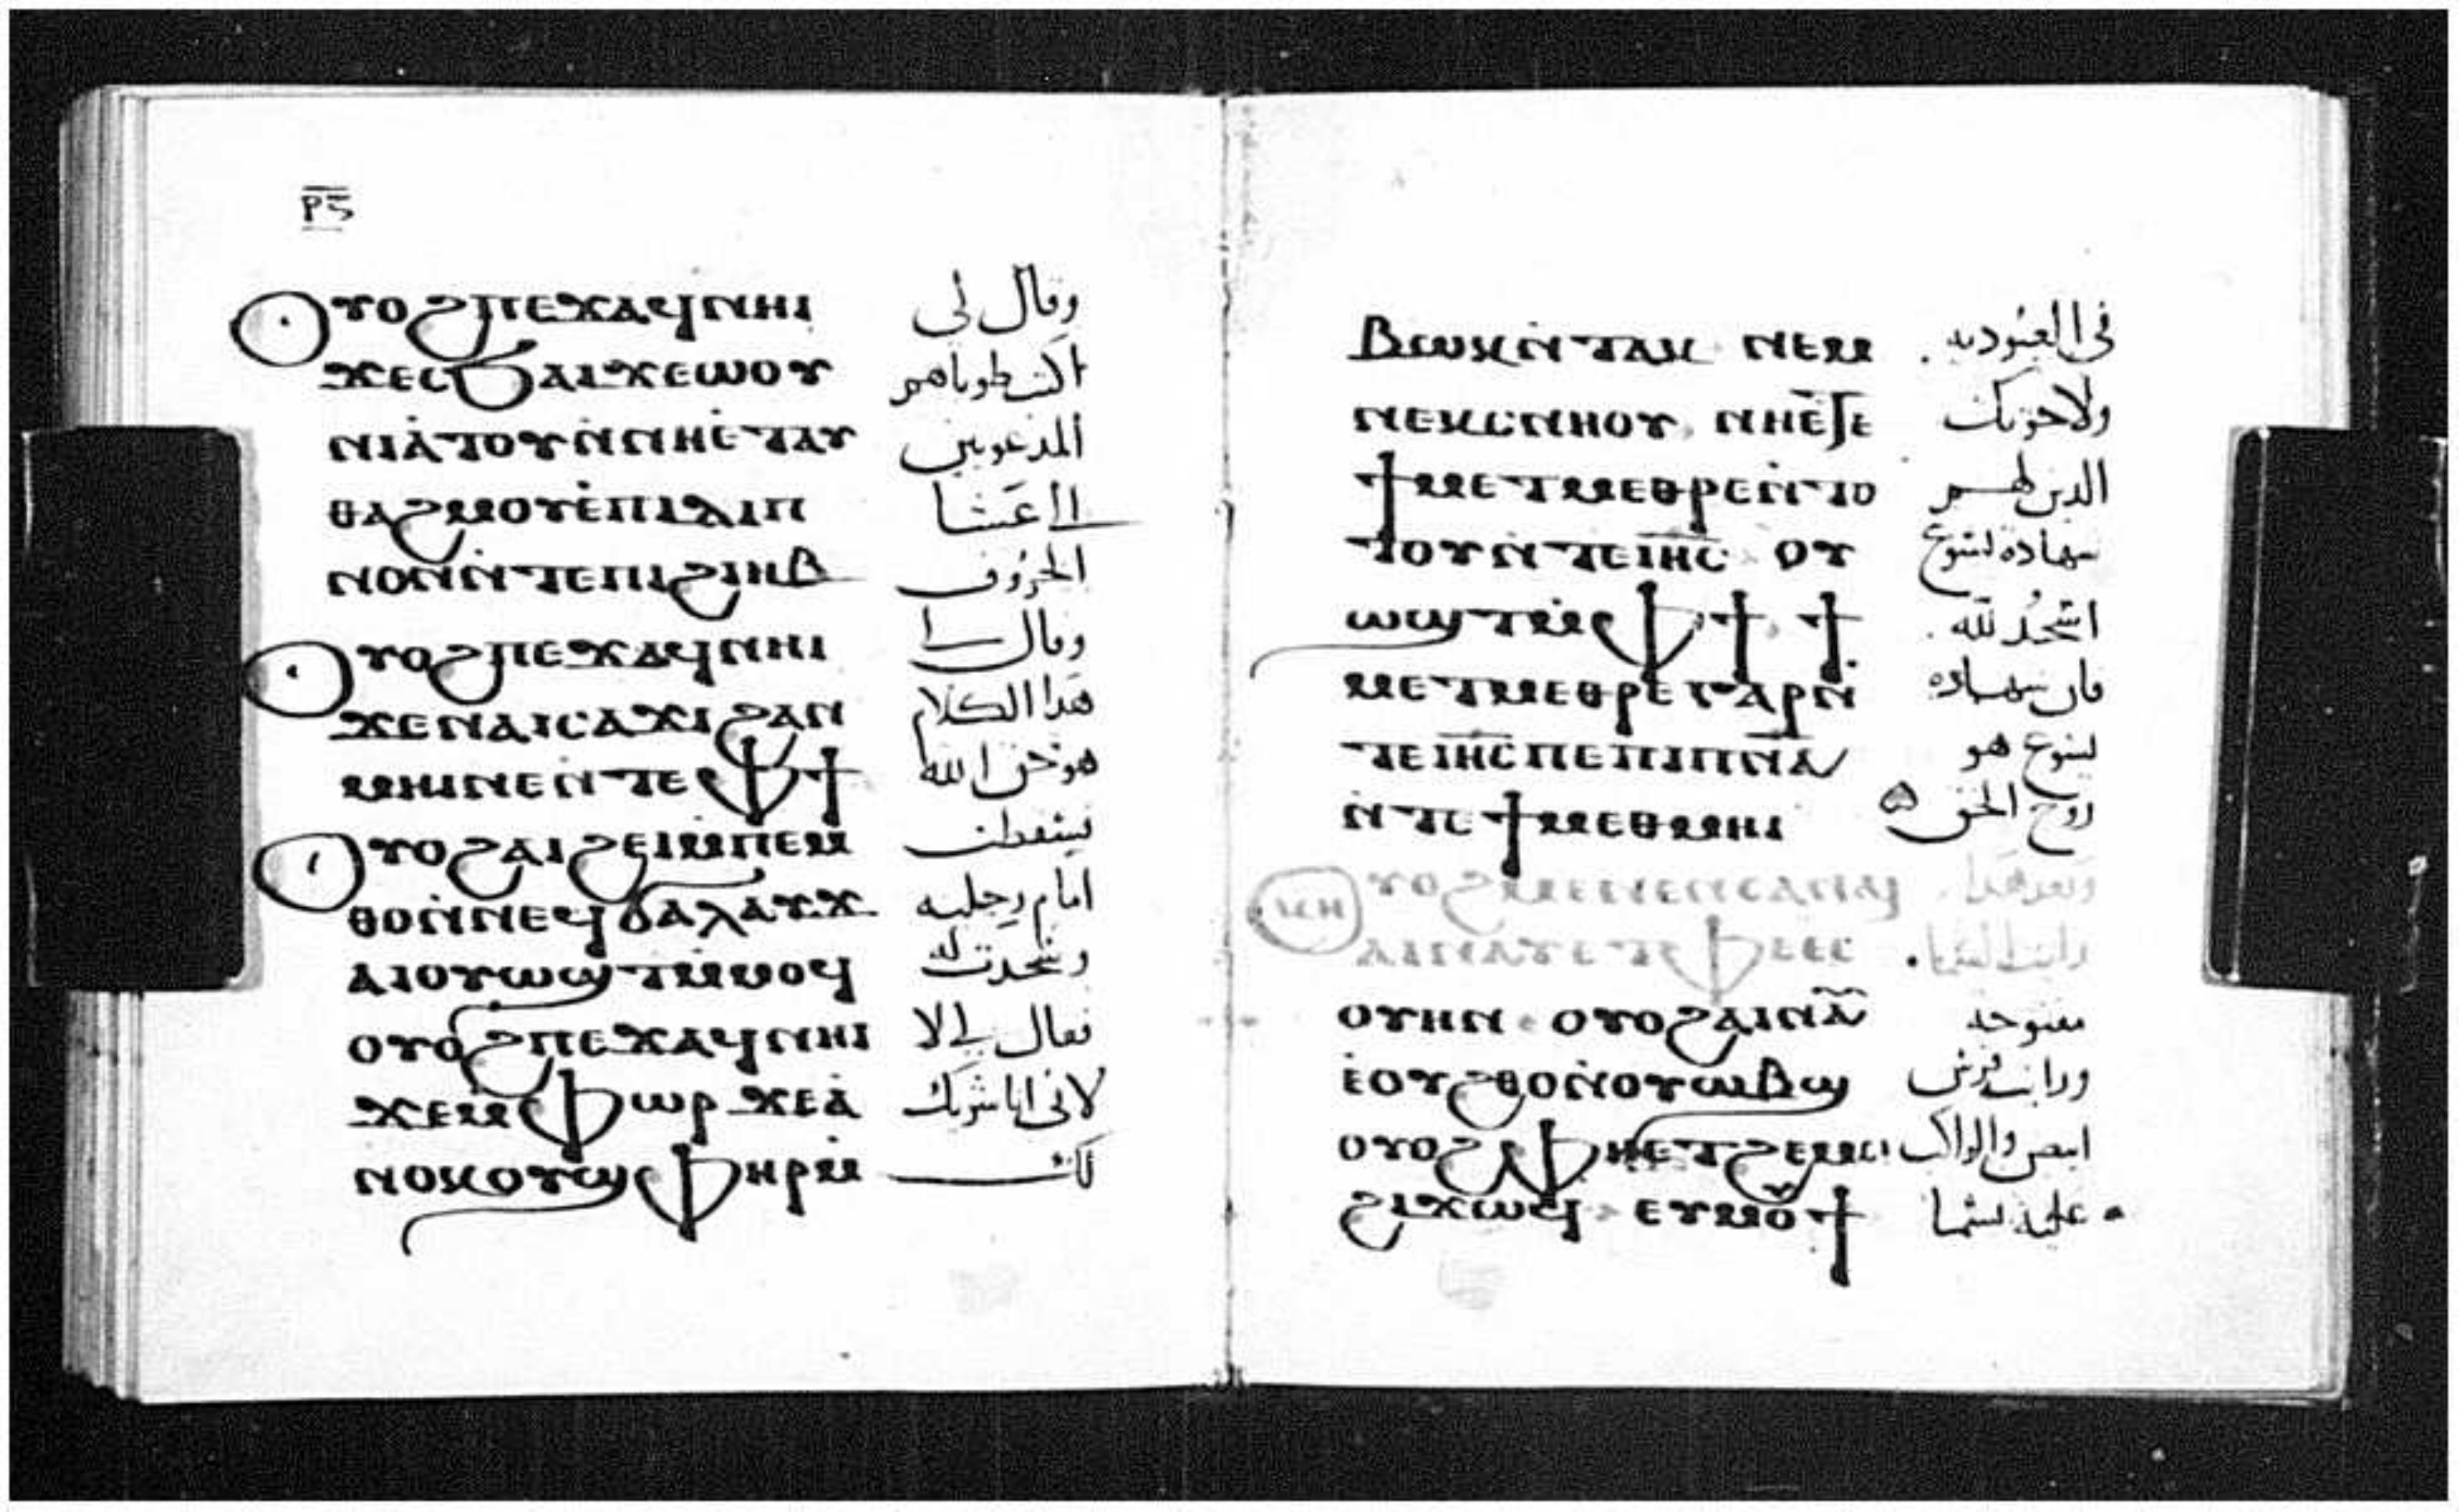 ⲣ̅ⲋ̅
ⲟⲩⲟϩ ⲡⲉϫⲁϥ ⲛⲏⲓ وقال لى
ϫⲉ ⲥϧⲁⲓ ϫⲉ ⲱⲟⲩ اكتب طوباهم
ⲛⲓⲁ̀ⲧⲟⲩ ⲛ̀ⲛⲏ ⲉ̀ⲧⲁⲩ المدعويين
ⲑⲁϩⲙⲟⲩ ⲉ̀ⲡⲓⲇⲓⲡ الى عشا
ⲛⲟⲛ ⲛ̀ⲧⲉ ⲡⲓϩⲓⲏⲃ الخروف
ⲟⲩⲟϩ ⲡⲉϫⲁϥ ⲛⲏⲓ وقال لى
ϫⲉ ⲛⲁⲓⲥⲁϫⲓ ϩⲁⲛ هذا الكلام
ⲙⲏⲓ ⲛⲉ ⲛ̀ⲧⲉ ⲫϯ هو حق الله
ⲟⲩⲟϩ ⲁⲓϩⲉⲓ ⲙ̀ⲡⲉⲙ فسقطت
ⲑⲟ ⲛ̀ⲛⲉϥϭⲁⲗⲁⲩϫ امام رجليه
ⲁⲓⲟⲩⲱϣⲧ ⲙ̀ⲙⲟϥ وسجدت له
ⲟⲩⲟϩ ⲡⲉϫⲁϥ ⲛⲏⲓ فقال لى لا
ϫⲉ ⲙⲫⲱⲣ ϫⲉ ⲁ̀ لانى انا شريك
ⲛⲟⲕ ⲟⲩϣⲫⲏⲣ ⲙ لك
ⲃⲱⲕ ⲛ̀ⲧⲁⲕ ⲛⲉⲙ فى العبودية
ⲛⲉⲕⲥⲛⲏⲟⲩ ⲛⲏ ⲉ̀ⲧⲉ ولاخوتك
ϯⲙⲉⲧⲙⲉⲑⲣⲉ ⲛ̀ⲧⲟ الذين لهم
ⲧⲟⲩ ⲛ̀ⲧⲉ ⲓⲏ̅ⲥ̅ ⲟⲩ شهادة يسوع
ⲱϣⲧ ⲙ̀ⲫϯ ϯ اسجد لله
ⲙⲉⲧⲙⲉⲑⲣⲉ ⲅⲁⲣ ⲛ̀ فان شهاده
ⲧⲉ ⲓⲏ̅ⲥ̅ ⲡⲉ ⲡⲓⲡ̅ⲛ̅ⲁ̅ يسوع هو
ⲛ̀ⲧⲉ ϯⲙⲉⲑⲙⲏⲓ روح الحق
ⲟⲩⲟϩ ⲙⲉⲛⲉⲛⲥⲁ ⲛⲁⲓ وبعد هذا
ⲁⲓⲛⲁⲩ ⲉ̀ⲧⲫⲉ ⲉⲥ رايت السما
ⲟⲩⲏⲛ ⲟⲩⲟϩ ⲁⲓⲛⲁⲩ مفتوحه
ⲉ̀ⲟⲩϩⲑⲟ ⲛ̀ⲟⲩⲱⲃϣ ورايت فرس
ⲟⲩⲟϩ ⲫⲏ ⲉⲧϩⲉⲙⲥⲓ ابيض والراكب
ϩⲓϫⲱϥ ⲉⲩⲙⲟⲩϯ عليه يسما